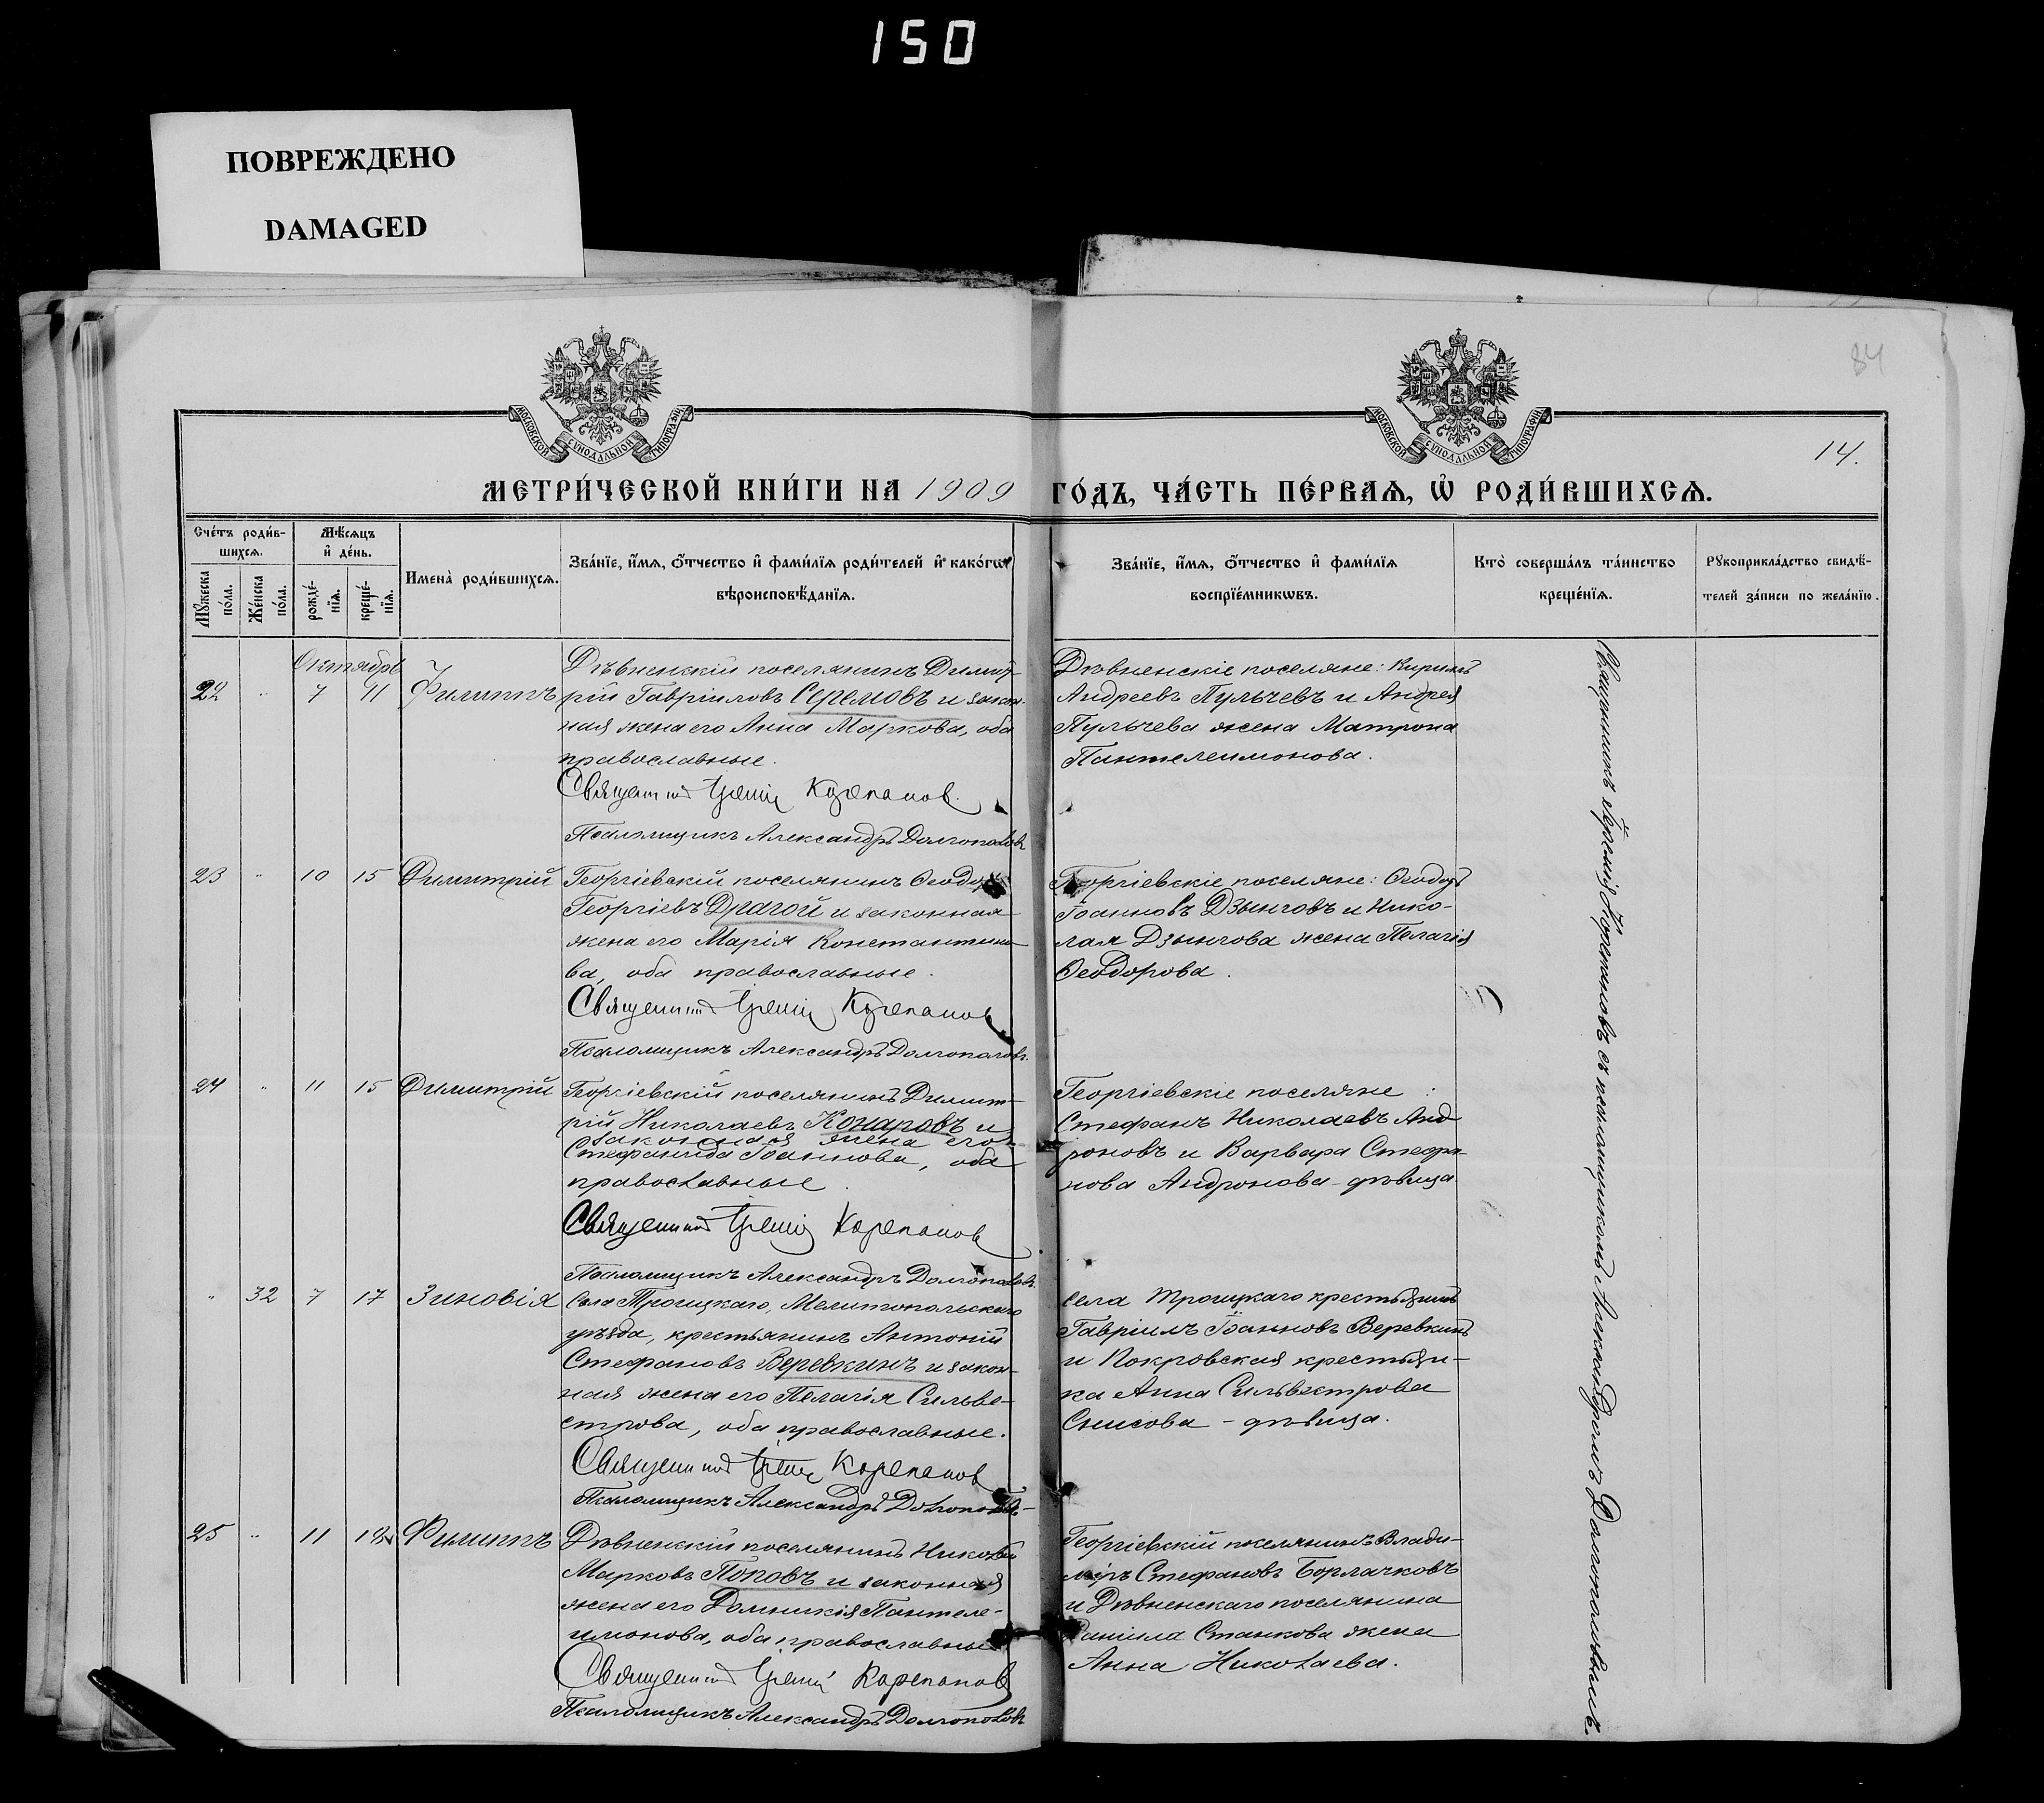 150
ПОВРЕЖДЕНО
DAMAGED
84
МОСКОВСКОЙ СѴНОДАЛЬНОЙ ТИПОГРАФІИ
МОСКОВСКОЙ СѴНОДАЛЬНОЙ ТИПОГРАФІИ
14.
МЕТРИ́ЧЕСКОЙ КНИ́ГИ НА 1909 ГО́ДЪ, ЧА́СТЬ ПЕ́РВАѦ, Ѽ РОДИ́ВШИХСѦ.
Сче́тъ роди́в-
шихсѧ.
Мꙋ́жеска по́ла.
Же́нска по́ла.
Мѣ́сѧцъ
и҆ де́нь.
рожде́-
нїѧ.
креще́-
нїѧ.
Имена̀ роди́вшихсѧ.
Зва́нїе, и҆́мѧ, ѻ҆́тчество и҆ фами́лїѧ роди́телей и҆ како́гѡ
вѣроисповѣ́данїѧ.
Зва́нїе, и҆́мѧ, ѻ҆́тчество и҆ фами́лїѧ
воспрїе́мникѡвъ.
Кто̀ соверша́лъ та́инство
креще́нїѧ.
Рꙋкоприкла́дство свидѣ́-
телей за́писи по жела́нїю.
Октябрь
22 " 7 11 Филиппъ
Дѣвненскій поселянинъ Димит-
рій Гавріиловъ Серемовъ и закон-
ная жена его Анна Маркова, оба
православные.
Священникъ Іеремія Корепанов.
Псаломщикъ Александръ Долгополовъ
Дѣвненскіе поселяне: Кириллъ
Андреевъ Пульчевъ и Андрея
Пульчева жена Матрона
Пантелеимонова.
23 " 10 15 Димитрій
Георгіевскій поселянинъ Ѳеодоръ
Георгіевъ Драгой и законная
жена его Марія Константино-
ва, оба православные.
Священникъ Іеремія Корепанов
Псаломщикъ Александръ Долгополовъ.
Георгіевскіе поселяне: Ѳеодоръ
Іоанновъ Дзынговъ и Нико-
лая Дзынгова жена Пелагія
Ѳеодорова.
24 " 11 15 Димитрій
Георгіевскій поселянинъ Димит-
рій Николаевъ Конаровъ и
законная жена его
Стефанида Іоаннова, оба
православные
Священникъ Іеремія Корепанов
Псаломщикъ Александръ Долгополовъ.
Георгіевскіе поселяне:
Стефанъ Николаевъ Анд
роновъ и Варвара Стефа-
нова Андронова - дѣвица
" 32 7 17 Зиновія
Села Троицкаго, Мелитопольскаго
уѣзда, крестьянинъ Антоній
Стефановъ Веревкинъ и закон-
ная жена его Пелагія Сильве-
строва, оба православные.
Священникъ Іеремія Корепанов
Псаломщикъ Александръ Долгополовъ-
села Троицкаго крестьянинъ
Гавріилъ Іоанновъ Веревкинъ
и Покровская крестьян-
ка Анна Сильвестрова
- дѣвица.
25 " 11 18 Филиппъ
Дѣвненскій поселянинъ Николай
Марковъ Поповъ и законная
жена его Домникія Пантеле-
имонова, оба православные
Священникъ Іеремія Корепанов
Псаломщикъ Александръ Долгополовъ
Георгіевскій поселянинъ Влади-
міръ Стефановъ Борлачковъ
и Дѣвненскаго поселянина
Даніила Станкова жена
Анна Николаева.
Священникъ Іеремія Корепановъ съ псаломщикомъ Александромъ Долгополовымъ.